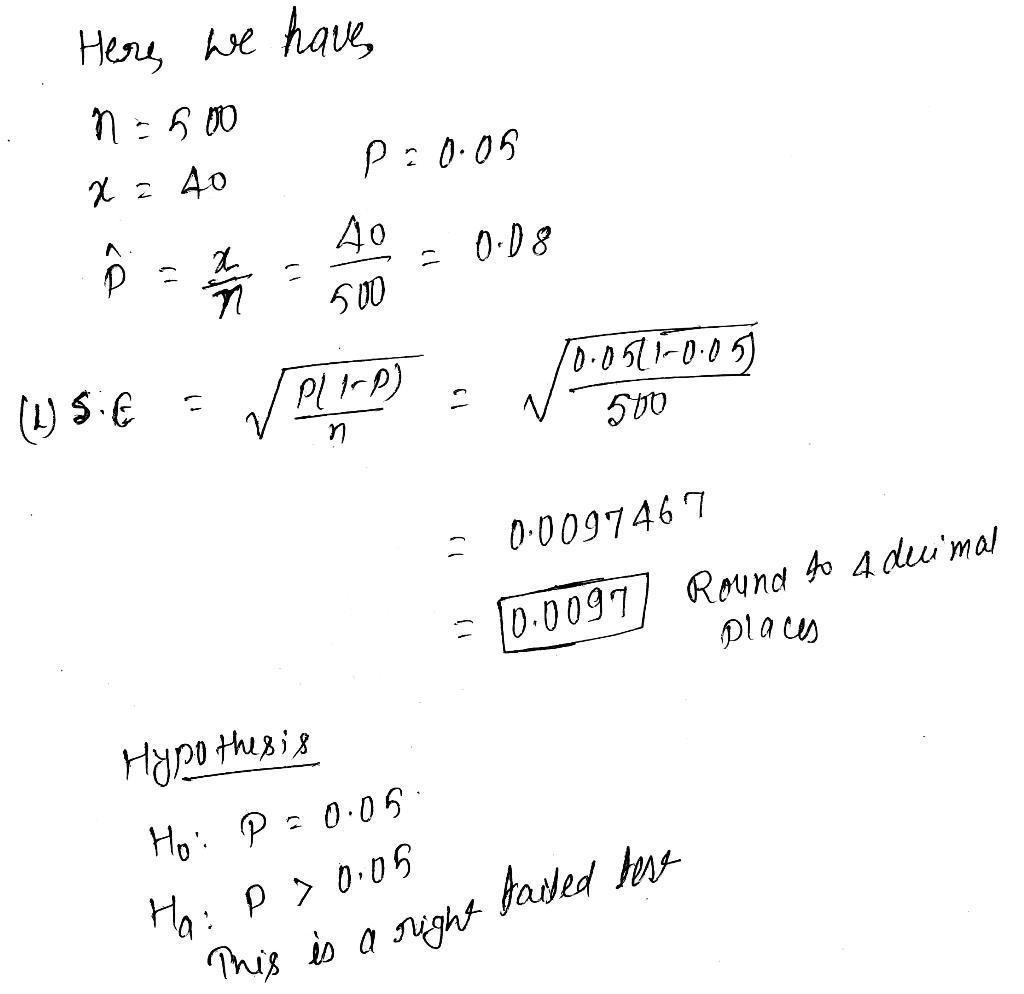 Here, we have,
n = 500
x = 40 P = 0.05
p̂ = x/n = 40/500 = 0.08
(1) S.E = √(P(1-P)/n) = √(0.05(1-0.05)/500)
= 0.0097467
= 0.0097 Round to 4 decimal places
Hypothesis
H₀: P = 0.05
Hₐ: P > 0.05
This is a right tailed test